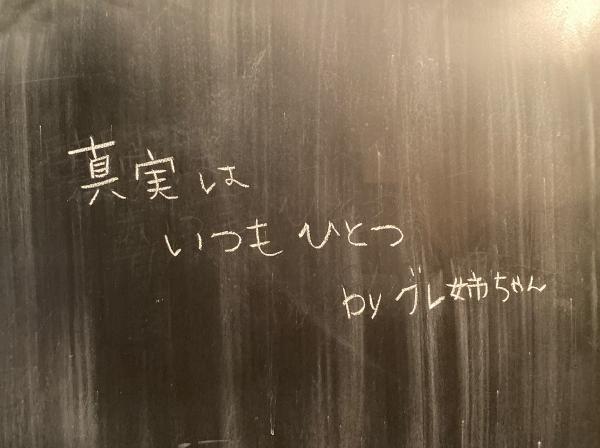 真実は
いつもひとつ
by グレ姉ちゃん